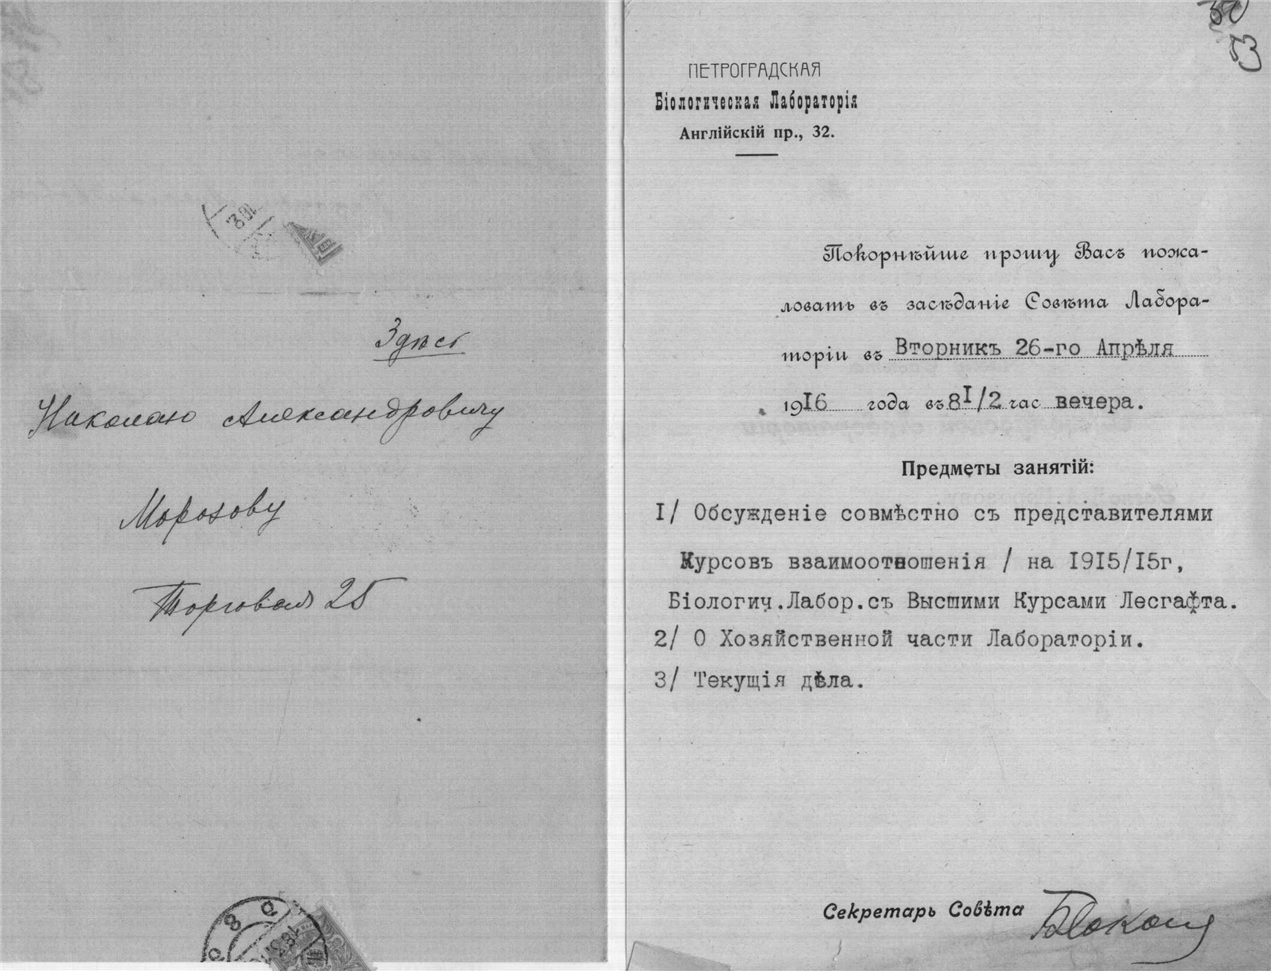 Здѣсь
Николаю Александровичу
Морозову
Торговая 25
ПЕТРОГРАДСКАЯ
Біологическая Лабораторія
Англійскій пр., 32.
Покорнѣйше прошу Васъ пожа-
ловать въ засѣданіе Совѣта Лабора-
торіи въ Вторникъ 26-го Апрѣля
19I6 года въ 8I/2 час вечера.
Предметы занятій:
I/ Обсужденіе совмѣстно съ представителями
Курсовъ взаимоотношенія / на I9I5/I5г,
Біологич.Лабор.съ Высшими Курсами Лесгафта.
2/ О Хозяйственной части Лабораторіи.
3/ Текущія дѣла.
Секретарь Совѣта